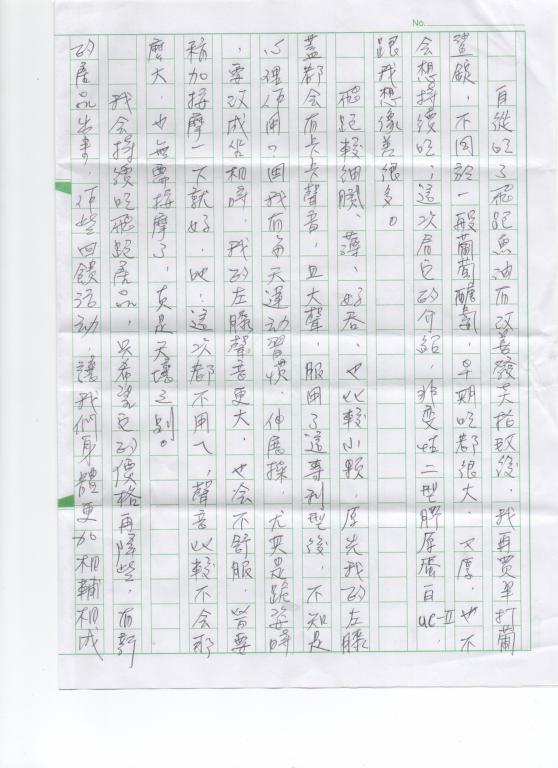 No.
自從吃了飛跑魚油有改善發夫指数後，我再買單打葡
萄錠，不同於一般葡萄醣氨，早期吃都很大，又厚，也不
会想持續吃；這次居它的介紹，非变性二型膠原蛋白UC-II，
跟我想像差很多。
飛跑較細膩、薄、好吞、也比較小顆，原先我的左膝
蓋都会有卡卡聲音，且大聲，服用了這專利型後，不知是
心理作用？因我有每天運动習慣，伸展操，尤其是跪姿時
，要改成坐相時，我的左膝聲音更大，也会不舒服，皆要
稍加按摩一下就好，此：這次都不用ㄟ，聲音比較不会那
麼大，也無需按摩了，真是天壤之別。
我会持續吃飛跑產品，只希望它的價格再降些，有新
的產品出來，作些回饋活动，讓我們身體更加相輔相成